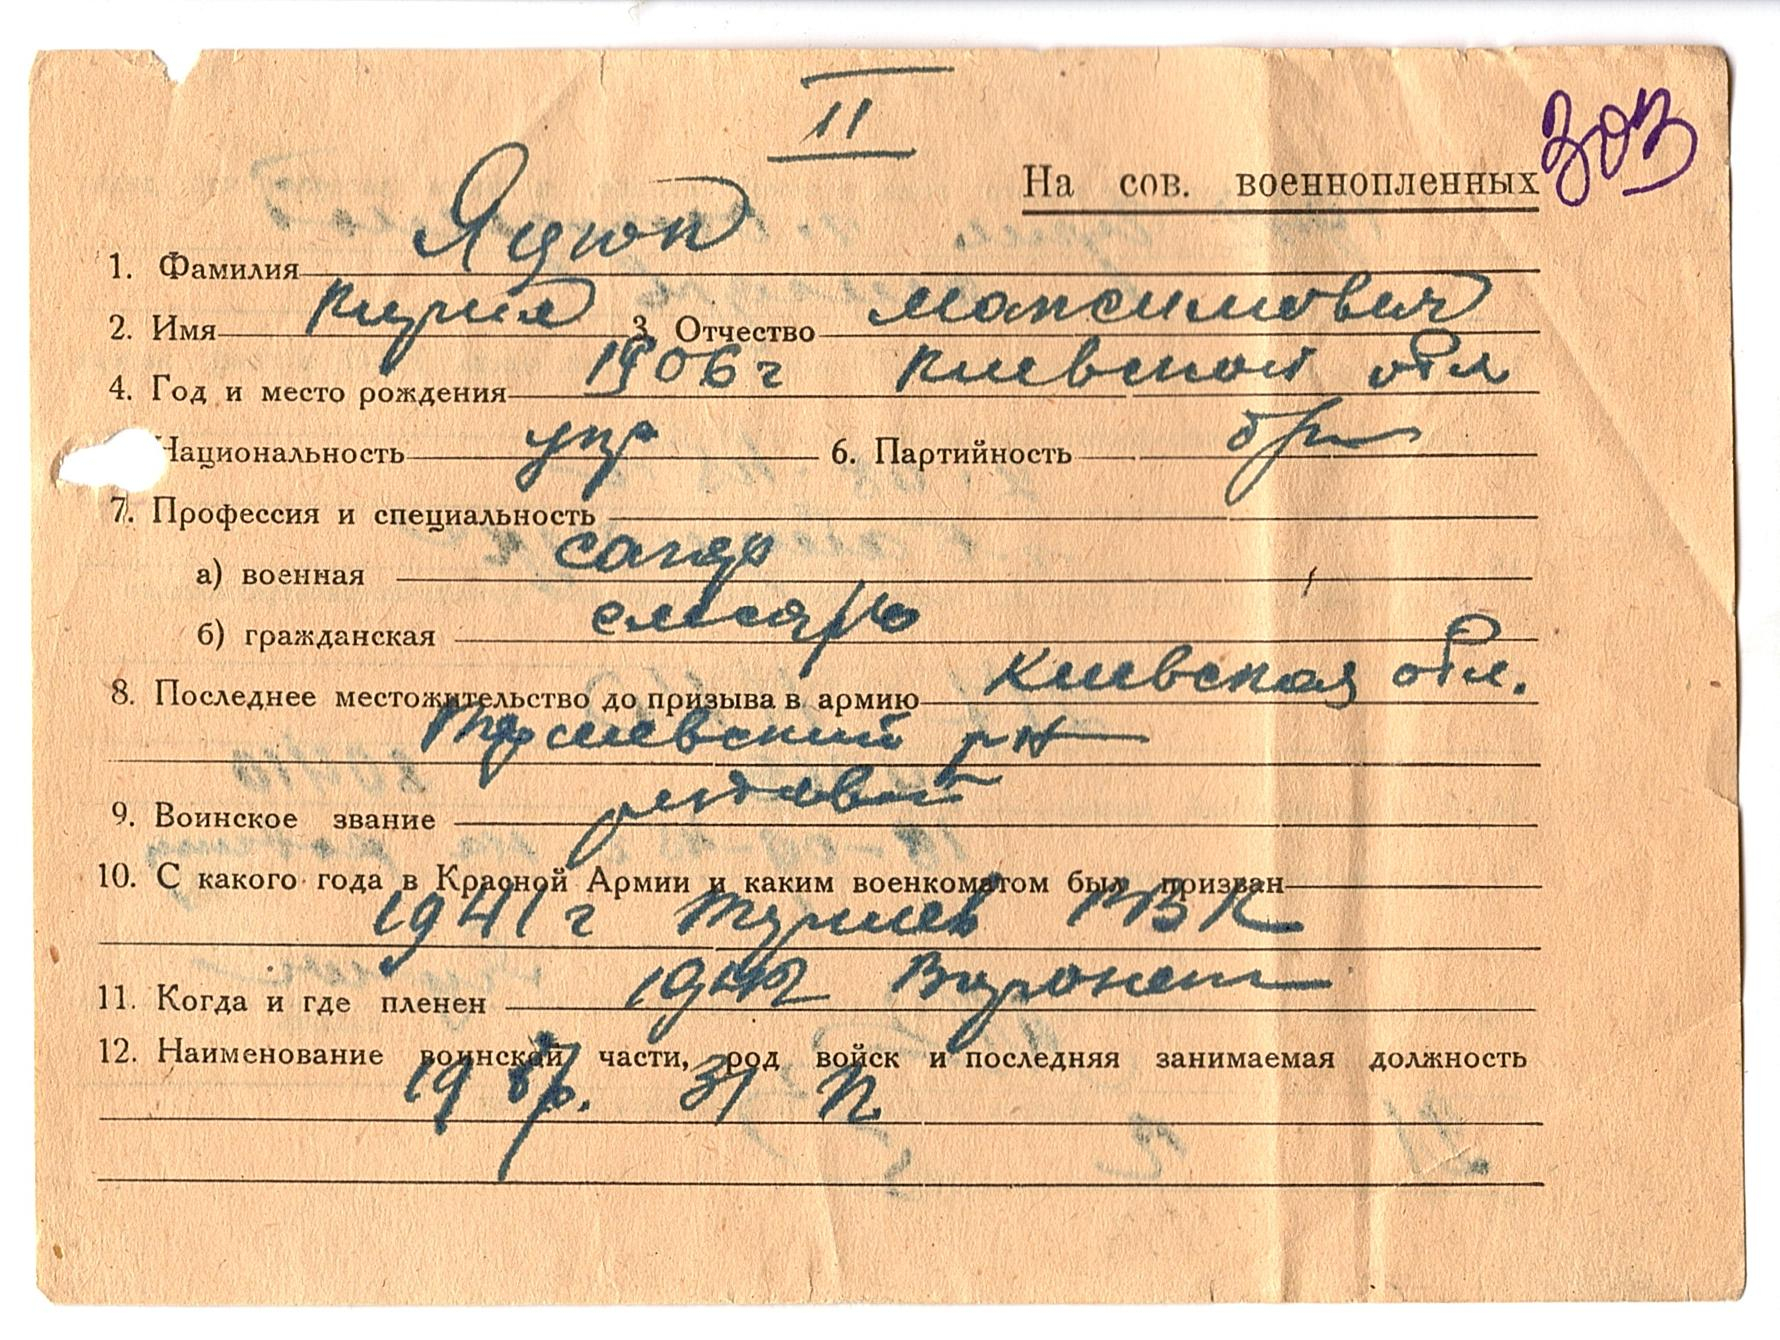 II
303
На сов. военнопленных
1. Фамилия Яцюк
2. Имя Кирил 3. Отчество Максимович
4. Год и место рождения 1906 г Киевской обл
Национальность укр 6. Партийность б/п
7. Профессия и специальность
а) военная сапер
б) гражданская слесарь
8. Последнее местожительство до призыва в армию Киевская обл.
р-н
9. Воинское звание рядовой
10. С какого года в Красной Армии и каким военкоматом был призван
1941 г РВК
11. Когда и где пленен 1942 Воронеж
12. Наименование воинской части, род войск и последняя занимаемая должность
31